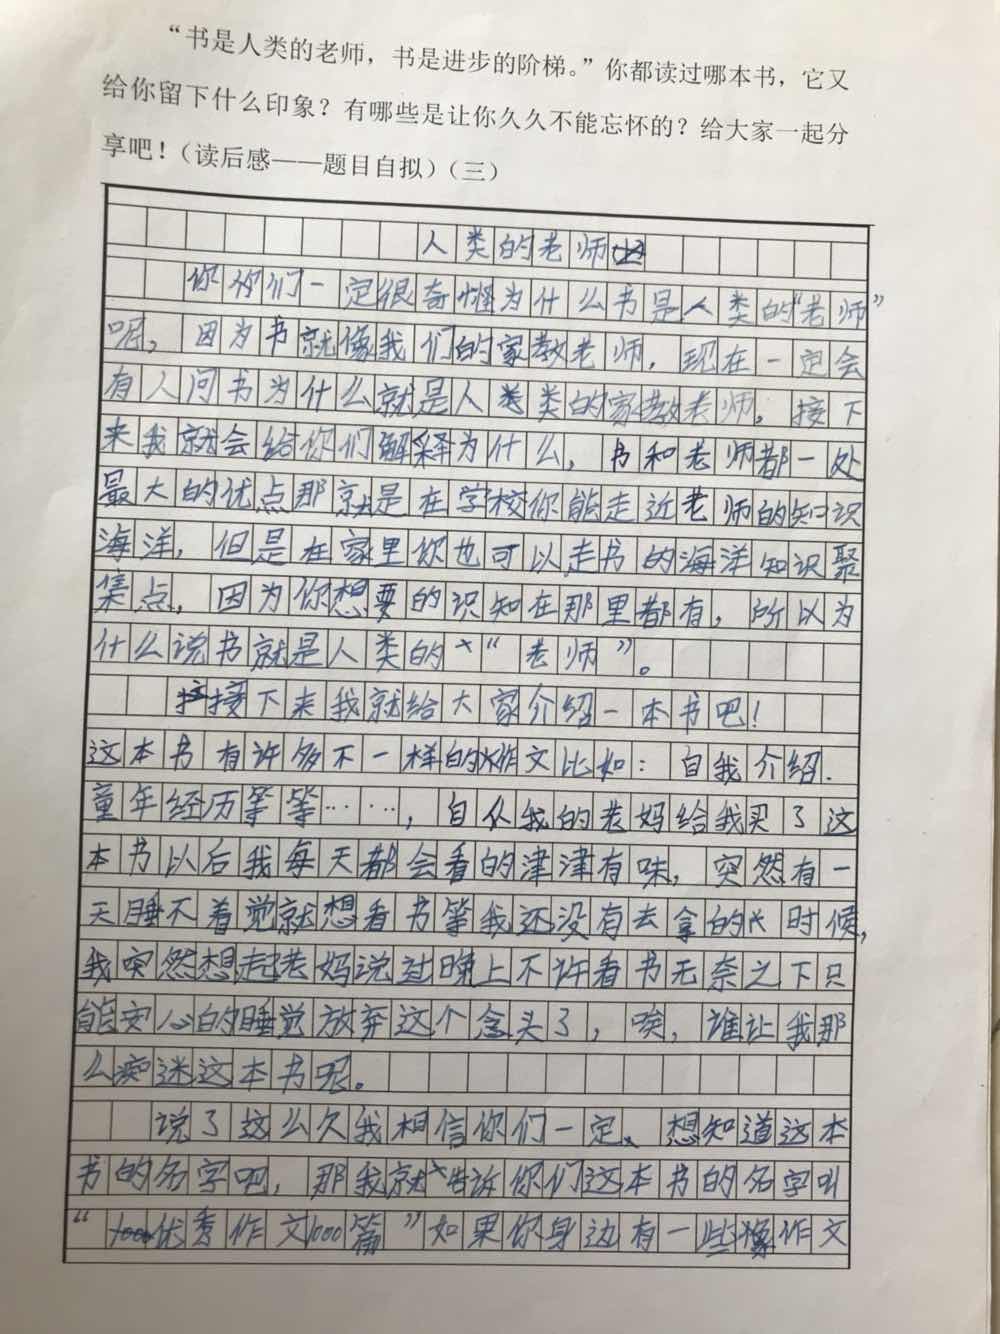 “书是人类的老师，书是进步的阶梯。”你都读过哪本书，它又
给你留下什么印象？有哪些是让你久久不能忘怀的？给大家一起分
享吧！（读后感——题目自拟）（三）
人类的老师
你们一定很奇怪为什么书是人类的“老师”
呢，因为书就像我们的家教老师，现在一定会
有人问书为什么就是人类的家教老师，接下
来我就会给你们解释为什么，书和老师都一处
最大的优点那就是在学校你能走近老师的知识
海洋，但是在家里你也可以走书的海洋知识聚
集点，因为你想要的识知在那里都有，所以为
什么说书就是人类的“老师”。
接下来我就给大家介绍一本书吧！
这本书有许多不一样的作文比如：自我介绍.
童年经历等等……，自从我的老妈给我买了这
本书以后我每天都会看的津津有味，突然有一
天睡不着觉就想看书等我还没有去拿的时候，
我突然想起老妈说过晚上不许看书无奈之下只
能安心的睡觉放弃这个念头了，唉，谁让我那
么痴迷这本书呢。
说了这么久我相信你们一定、想知道这本
书的名字吧，那我就告诉你们这本书的名字叫
“优秀作文1000篇”如果你身边有一些像作文